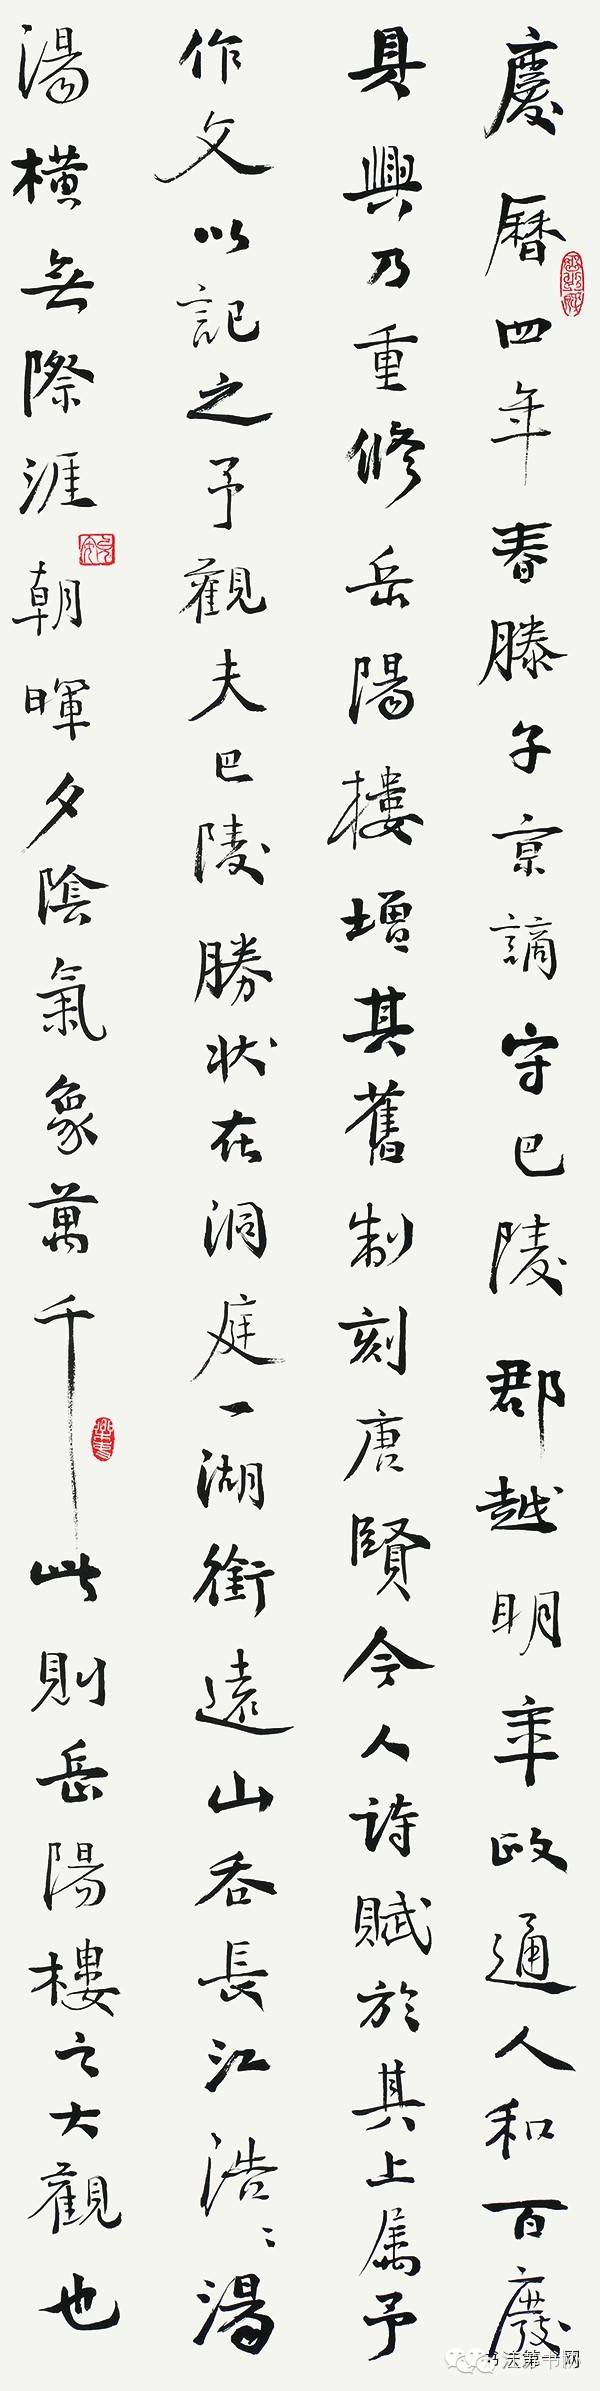 慶曆四年春滕子京謫守巴陵郡越明年政通人和百廢
具興乃重修岳陽樓增其舊制刻唐賢今人詩賦於其上属予
作文以記之予觀夫巴陵勝狀在洞庭一湖銜遠山吞長江浩〻湯
湯橫無際涯朝暉夕陰氣象萬千此則岳陽樓之大觀也
书法第一书网